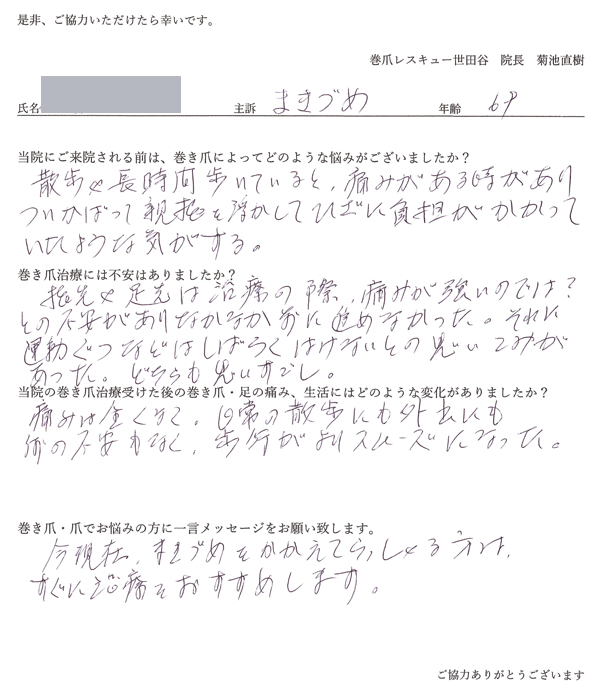 是非、ご協力いただけたら幸いです。
巻爪レスキュー世田谷 院長 菊池直樹
氏名 主訴 まきづめ 年齢 69
当院にご来院される前は、巻き爪によってどのような悩みがございましたか？
散歩や長時間歩いていると、痛みがある時があり
ついかばって親指を浮かしてひざに負担がかかって
いたような気がする。
巻き爪治療には不安はありましたか？
指先や足先は治療の際、痛みが強いのでは？
との不安がありなかなか前に進めなかった。それに
運動ぐつなどはしばらくはけないとの思いこみが
あった。どちらも思いすごし。
当院の巻き爪治療受けた後の巻き爪・足の痛み、生活にはどのような変化がありましたか？
痛みは全くなく。日常の散歩にも外出にも
何の不安もなく、歩行がよりスムーズになった。
巻き爪・爪でお悩みの方に一言メッセージをお願い致します。
今現在、まきづめをかかえてらっしゃる方は、
すぐに治療をおすすめします。
ご協力ありがとうございます